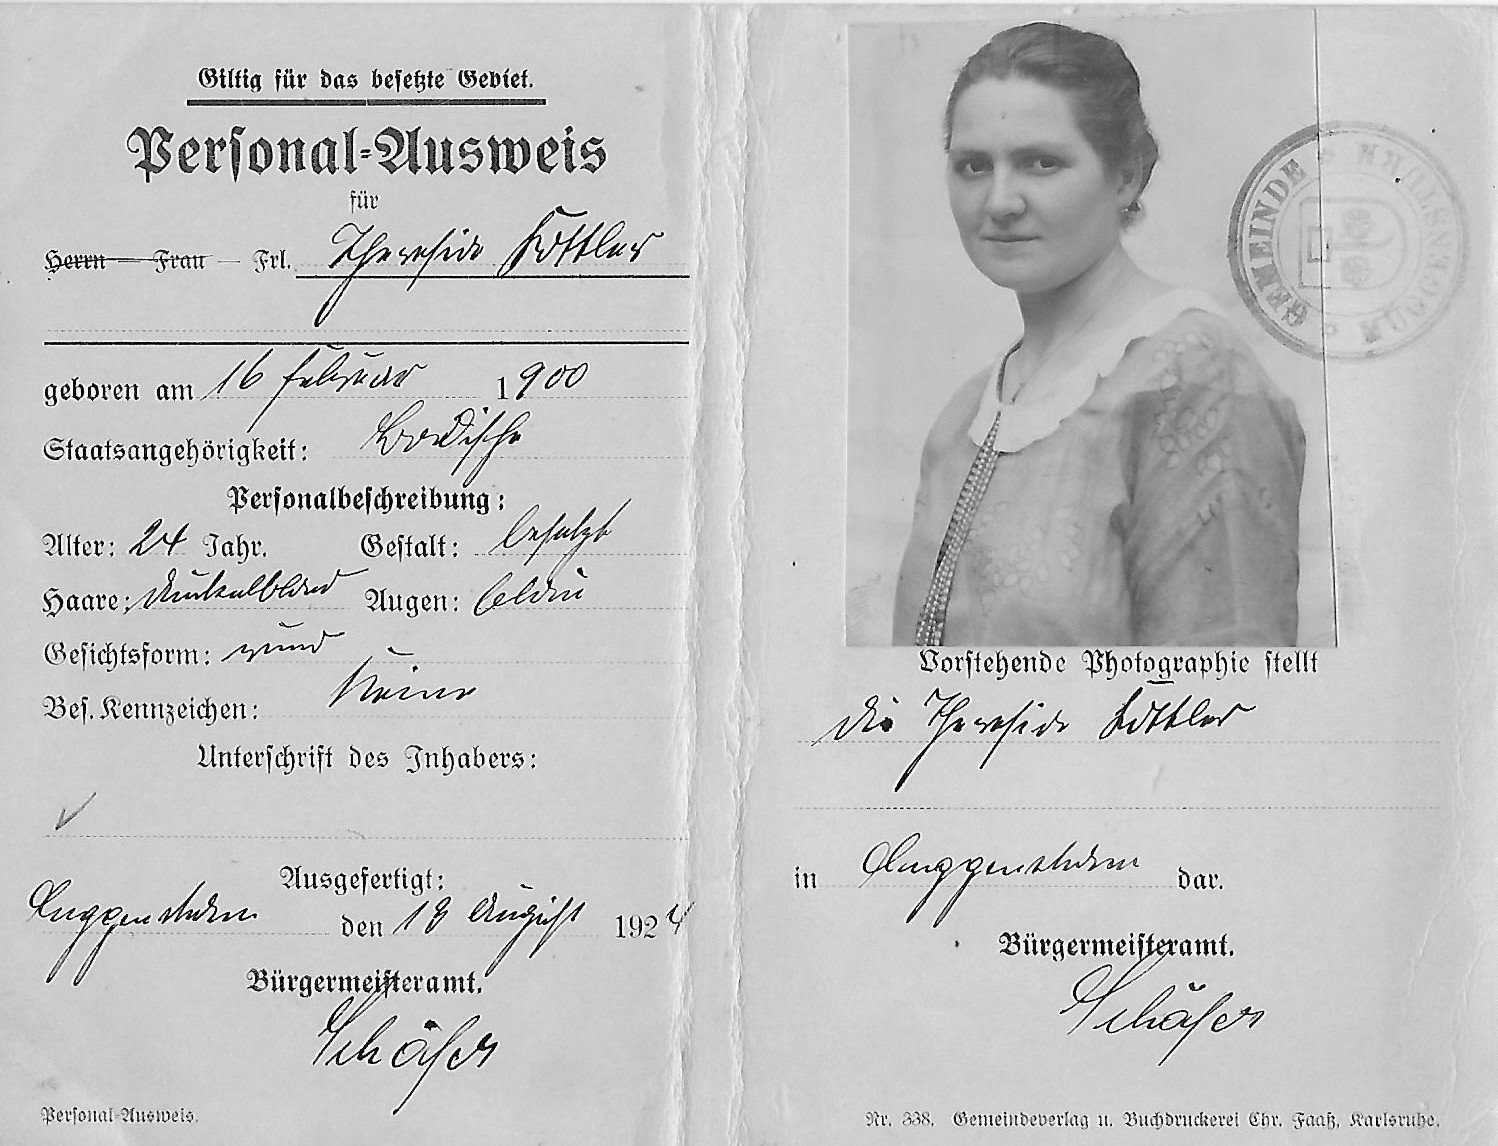 Giltig für das besetzte Gebiet.
Personal-Ausweis
für
Herrn — Frau — Frl. Theresia
geboren am 16 Februar 1900
Staatsangehörigkeit: Badische
Personalbeschreibung:
Alter: 24 Jahr. Gestalt: besetzt
Haare: dunkelblond Augen: blau
Gesichtsform: rund
Bes. Kennzeichen: Keine
Unterschrift des Inhabers:
Ausgefertigt:
Muggensturm den 18 August 1924
Bürgermeisteramt.
Schäfer
Personal-Ausweis.
GEMEINDE * MUGGENSTURM *
Vorstehende Photographie stellt
die Theresia
in Muggensturm dar.
Bürgermeisteramt.
Schäfer
Nr. 338. Gemeindeverlag u. Buchdruckerei Chr. Faaß, Karlsruhe.